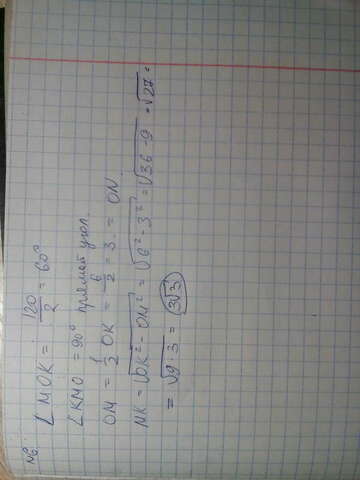 №6.
∠MOK = 120/2 = 60°
∠KMO = 90° прямой угол.
OM = 1/2 OK = 6/2 = 3. = ON
MK = √(OK² - OM²) = √(6² - 3²) = √(36 - 9) = √27 =
= √(9·3) = 3√3